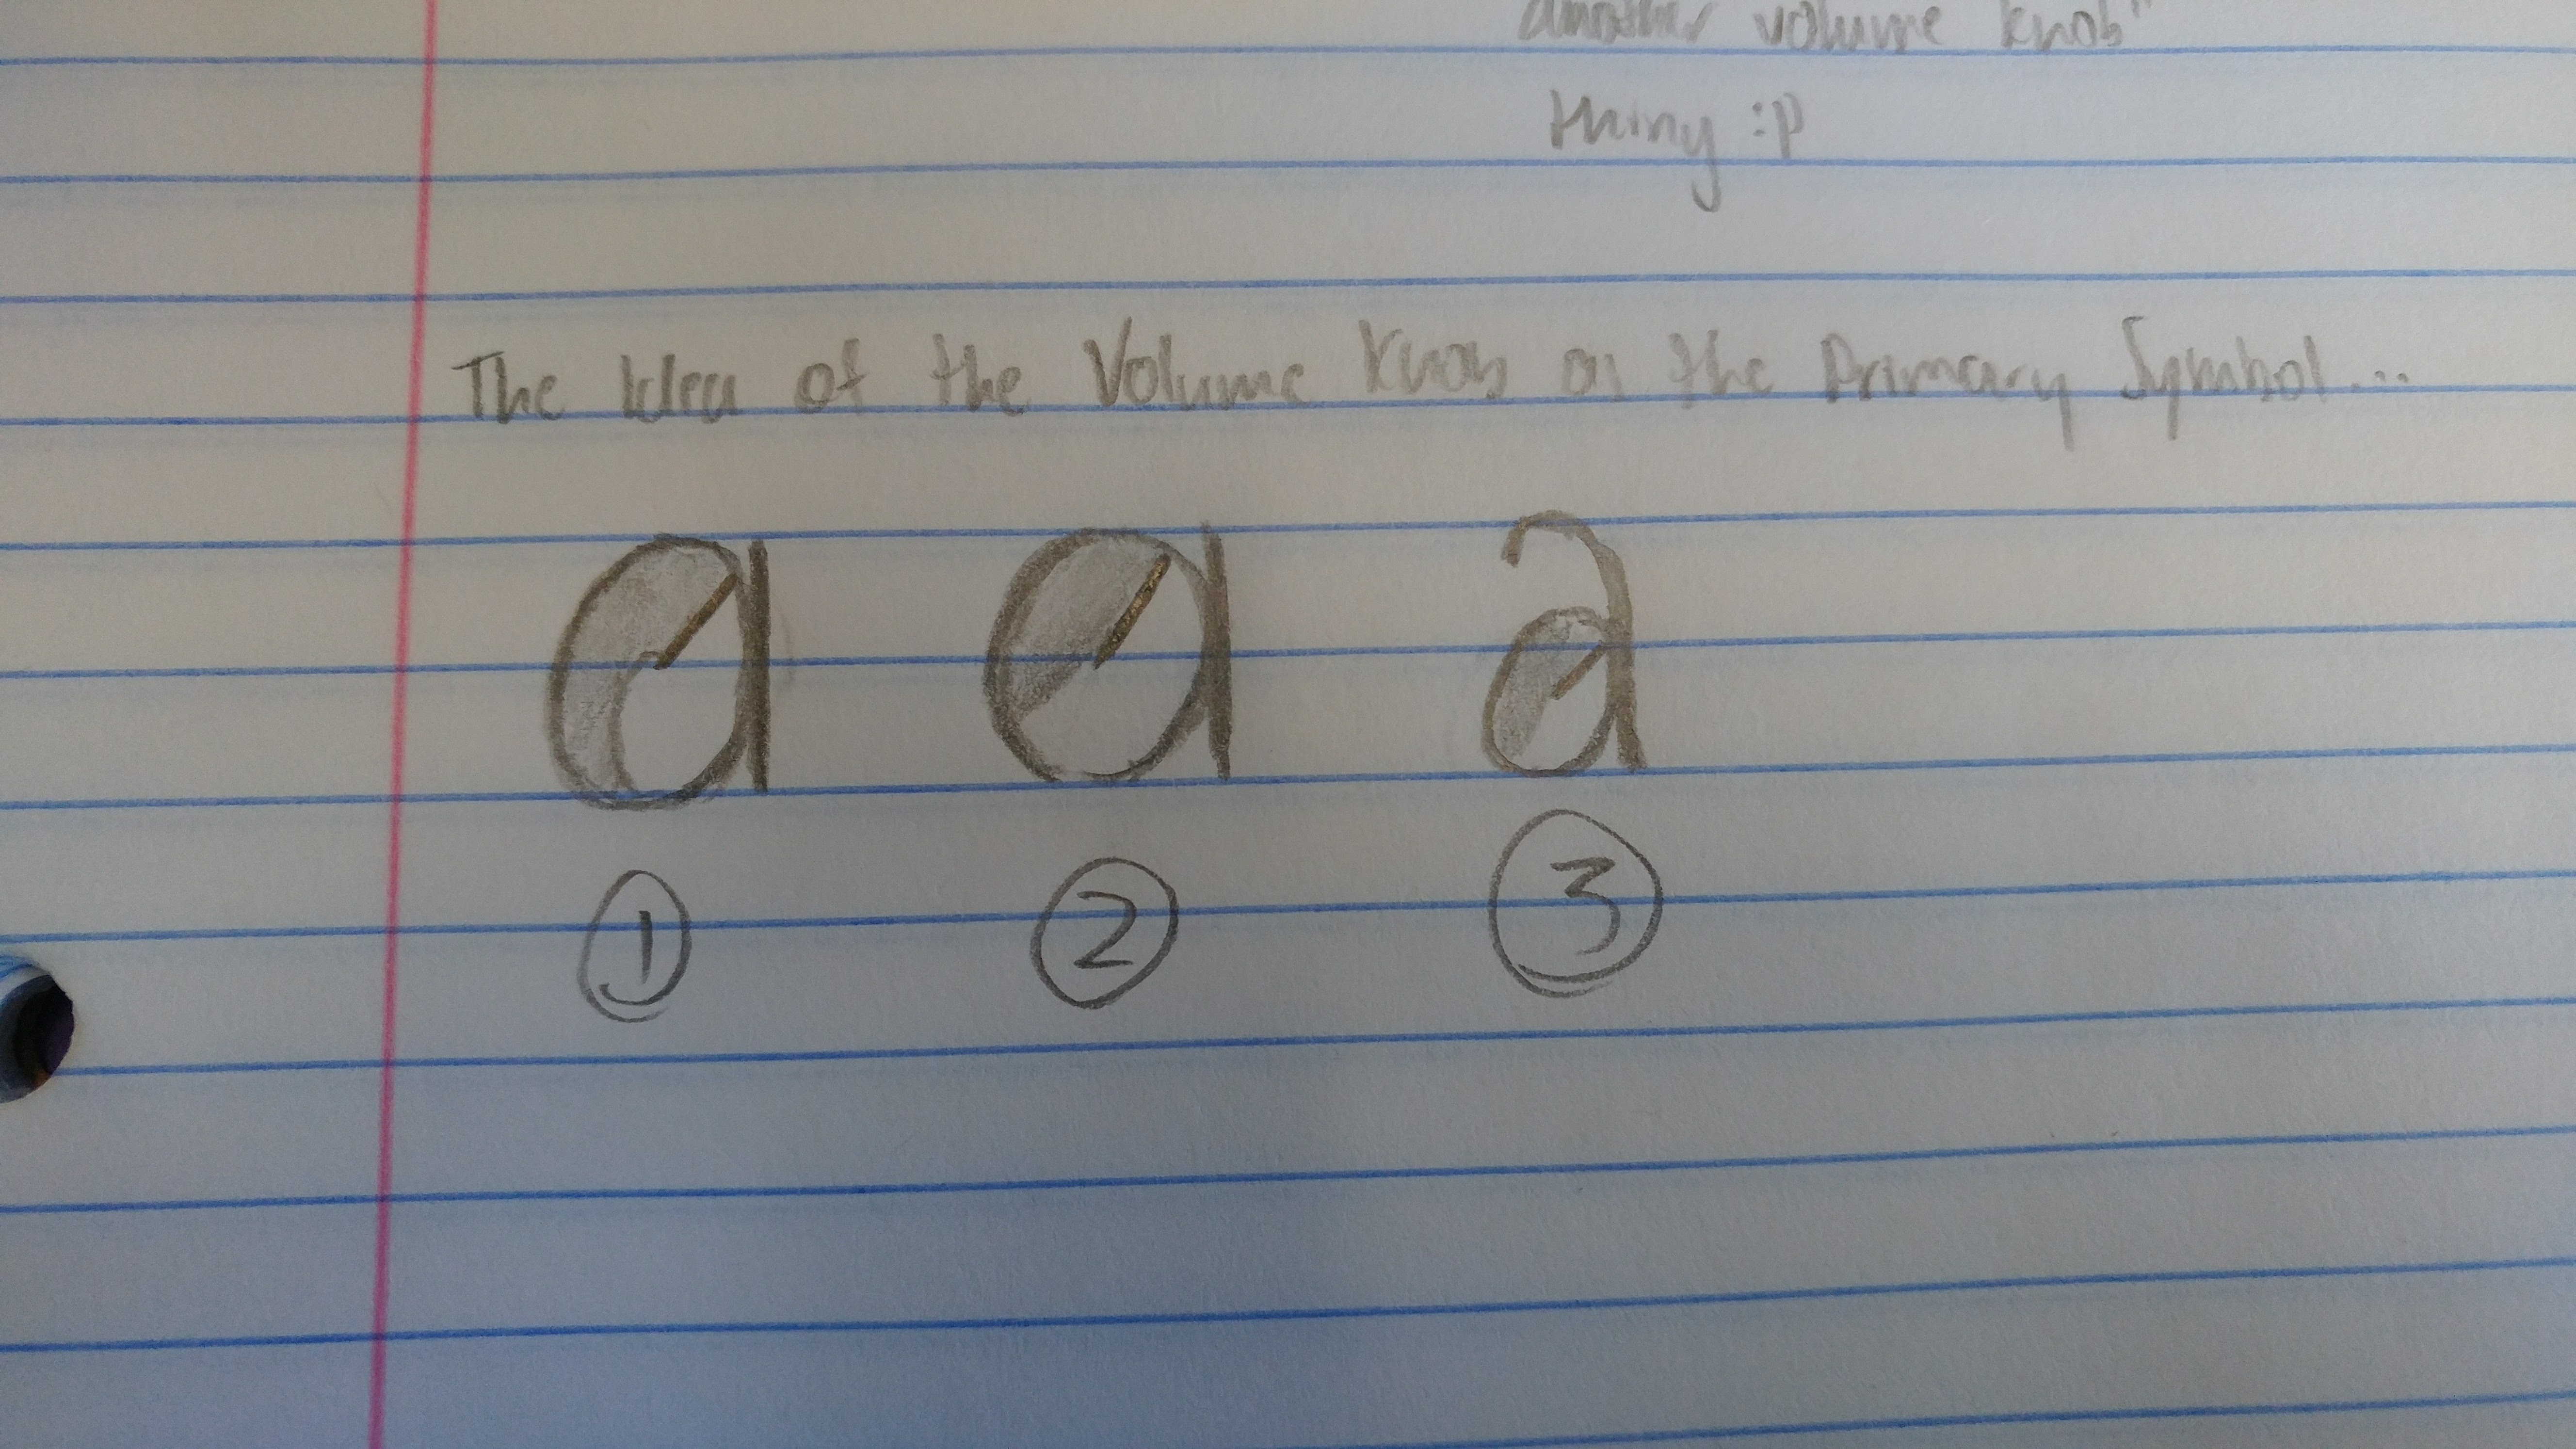 another volume knob"
thiny :P
The Idea of the Volume Knob as the Primary Symbol...
a a a
1 2 3